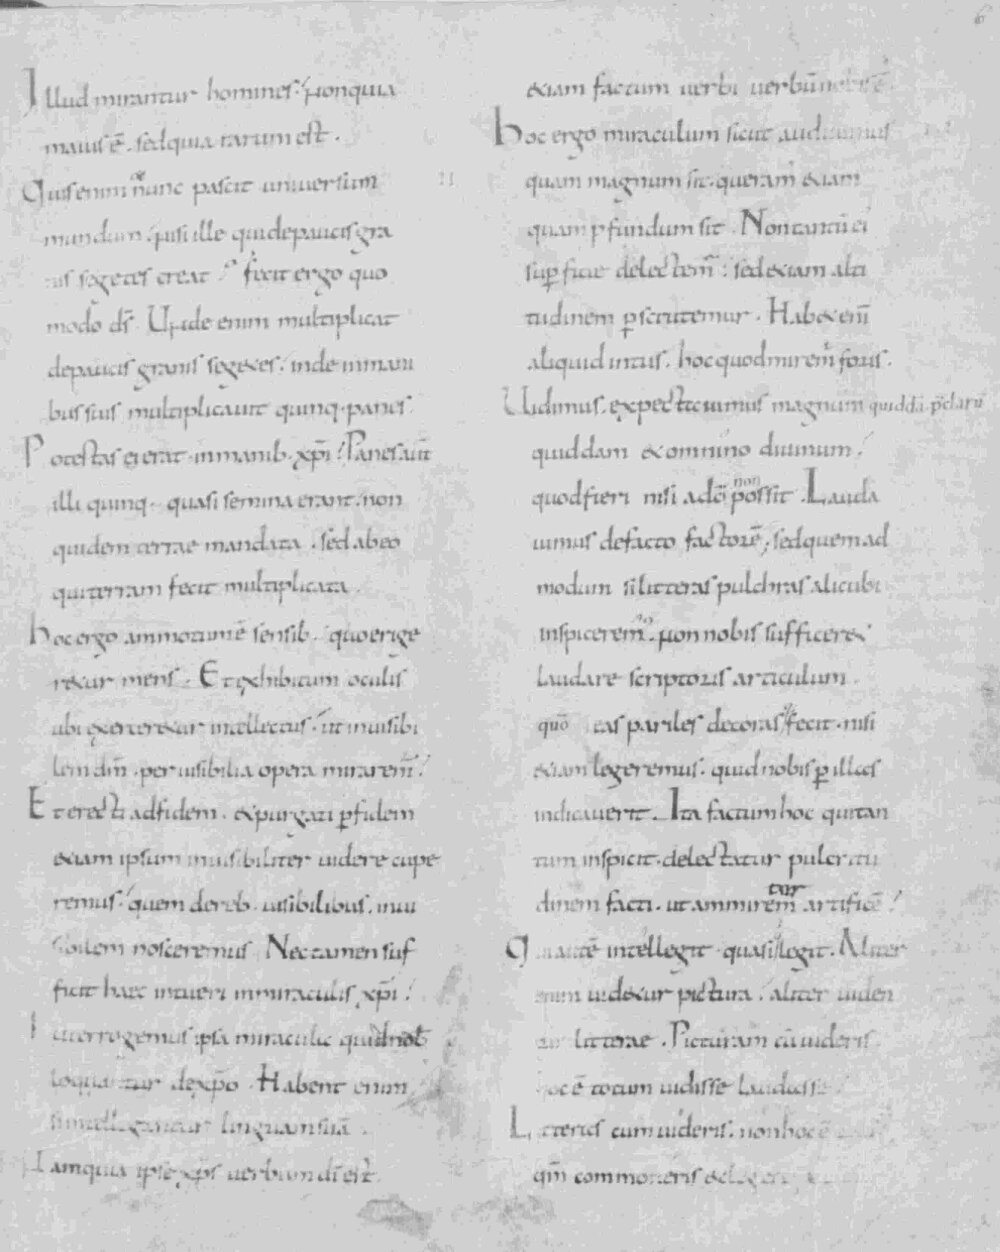 Illud mirantur homines. non quia
maius ē. sed quia rarum est.
Quis enim nunc pascit universum
mundum. nisi ille qui de paucis gra
nis segetes creat? fecit ergo quo
modo ds̄. Unde enim multiplicat
de paucis granis segetes. inde in mani
bus suis multiplicavit quinq. panes.
Potestas ei erat in manib. xp̄i. Panes aūt
illi quinq. quasi semina erant. non
quidem terrae mandata. sed ab eo
qui terram fecit multiplicata.
Hoc ergo ammotum ē sensib. quo erige
retur mens. Et exhibitum oculis
ubi exerceretur intellectus. ut invisibi
lem dm̄. per visibilia opera miraremur.
Et erecti ad fidem. & purgati p fidem
etiam ipsum invisibiliter videre cupe
remus. quem de reb. visibilibus. invi
sibilem nosceremus. Nec tamen suf
ficit haec intueri in miraculis xp̄i.
Interrogemus ipsa miracula quid nob̄
loquantur de xp̄o. Habent enim
si intellegantur linguam suā.
Nam quia ipse xp̄s verbum dī est
6
etiam factum verbi verbū nobis ē.
Hoc ergo miraculum sicut audivimus
II
quam magnum sit. queram' etiam
quam pfundum sit. Non tantū ei
supficie delectem'. sed etiam alti
tudinem pscrutemur. Habet em̄
aliquid intus. hoc quod mirem' foris.
Vidimus. expectavimus magnum quiddā. pclarū
quiddam & omnino divinum.
non
quod fieri nisi a dō possit. Lauda
vimus de facto factorē; sed quemad
modum si litteras pulchras alicubi
inspiceremus. non nobis sufficeret
laudare scriptoris articulum.
quō eas pariles decoras fecit. nisi
etiam legeremus. quid nobis p illas
indicaverit. Ita factum hoc qui tan
tum inspicit. delectatur pulcritu
tur
dinem facti. ut ammirem artificē.
Qui autē intellegit. quasi legit. Aliter
enim videtur pictura. aliter viden
tur litterae. Picturam cū videris
hoc ē totum vidisse laudasse.
Litteras cum videris. non hoc ē
qm̄ commoneris & legere